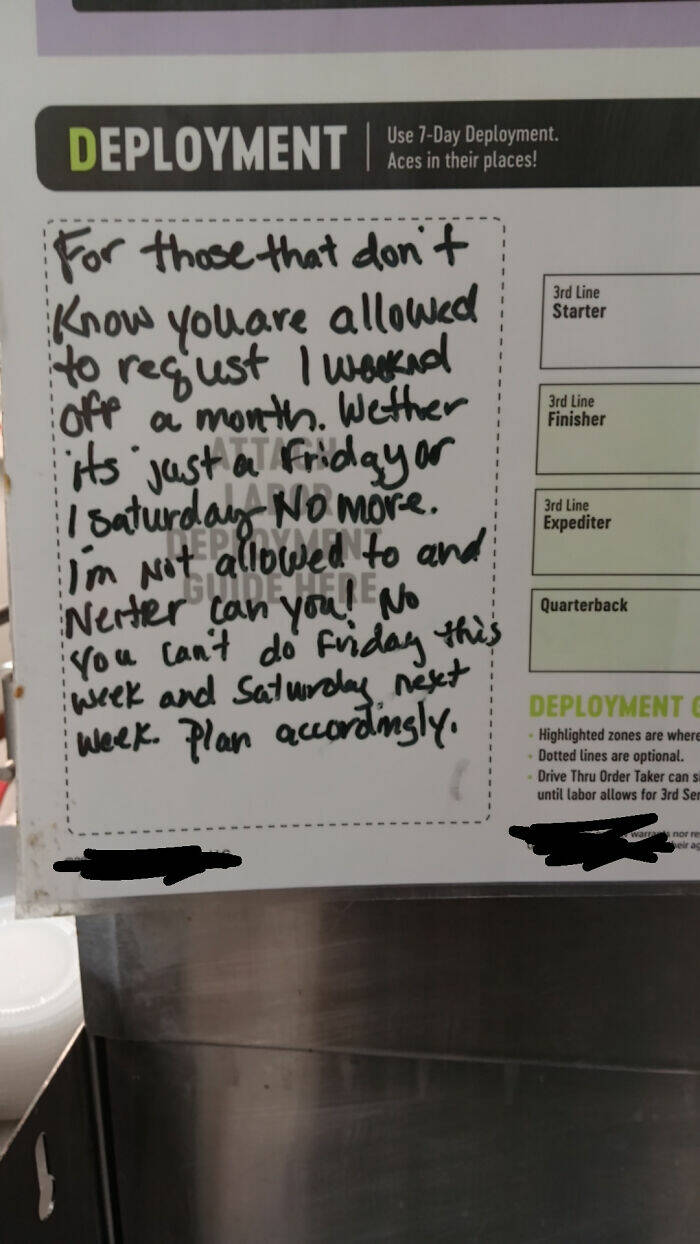 DEPLOYMENT
Use 7-Day Deployment.
Aces in their places!
For those that don't
Know you are allowed
to requst 1 weeknd
off a month. Wether
its just a Friday or
1 saturday NO more.
I'm Not allowed to and
Neiter can you! No
You can't do Friday this
week and Saturday next
week. Plan accordingly.
ATTACH
LABOR
DEPLOYMENT
GUIDE HERE
3rd Line
Starter
3rd Line
Finisher
3rd Line
Expediter
Quarterback
DEPLOYMENT G
- Highlighted zones are where
- Dotted lines are optional.
- Drive Thru Order Taker can s
until labor allows for 3rd Ser
warrants nor re
heir ag